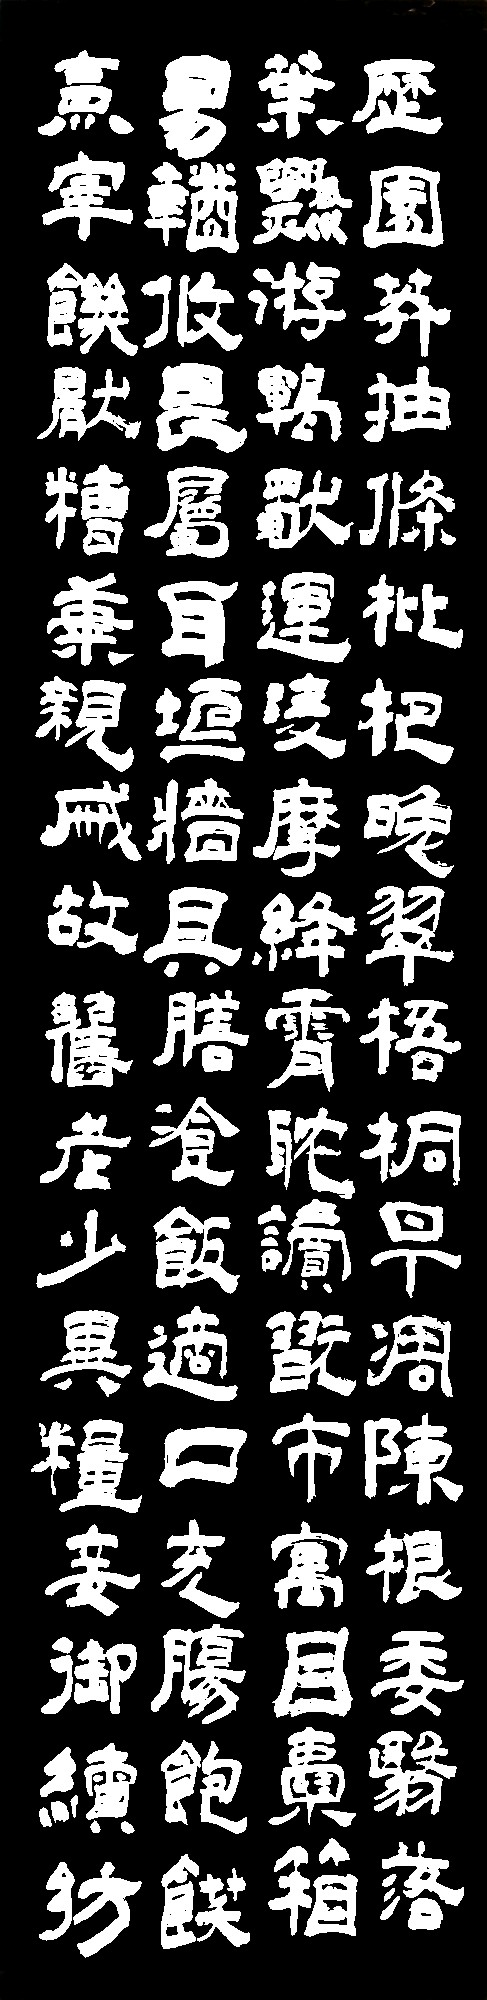 歷園莽抽條枇杷晚翠梧桐早凋陳根委翳落
葉飄游鶤獨運凌摩絳霄耽讀翫市寓目囊箱
易輶攸畏屬耳垣牆具膳湌飯適口充腸飽飫
烹宰饑厭糟糠親戚故舊老少異糧妾御績紡